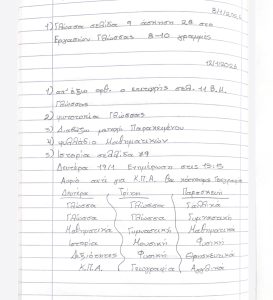 8/1/2026
1) Γλώσσα σελίδα 9 άσκηση 2α στο
Εργασιών Γλώσσας 8-10 γραμμές
12/1/2026
1) απ' έξω ορθ. ο κυνηγός σελ. 11 Β.Μ.
Γλώσσας
2) φωτοτυπία Γλώσσας
3) Διαβάζω μικρό Παρακείμενο
4) φυλλάδιο Μαθηματικών
5) Ιστορία σελίδα 79
Δευτέρα 19/1 Ενημέρωση στις 13:15
Αύριο αντί για Κ.Π.Α. θα κάνουμε Γεωγραφία
Δευτέρα Τρίτη Παρασκευή
Γλώσσα Γλώσσα Γαλλικά
Γλώσσα Γλώσσα Γυμναστική
Μαθηματικά Γυμναστική Μαθηματικά
Ιστορία Μουσική Φυσική
Δεξιότητες Φυσική Θρησκευτικά
Κ.Π.Α. Γεωγραφία Αγγλικά